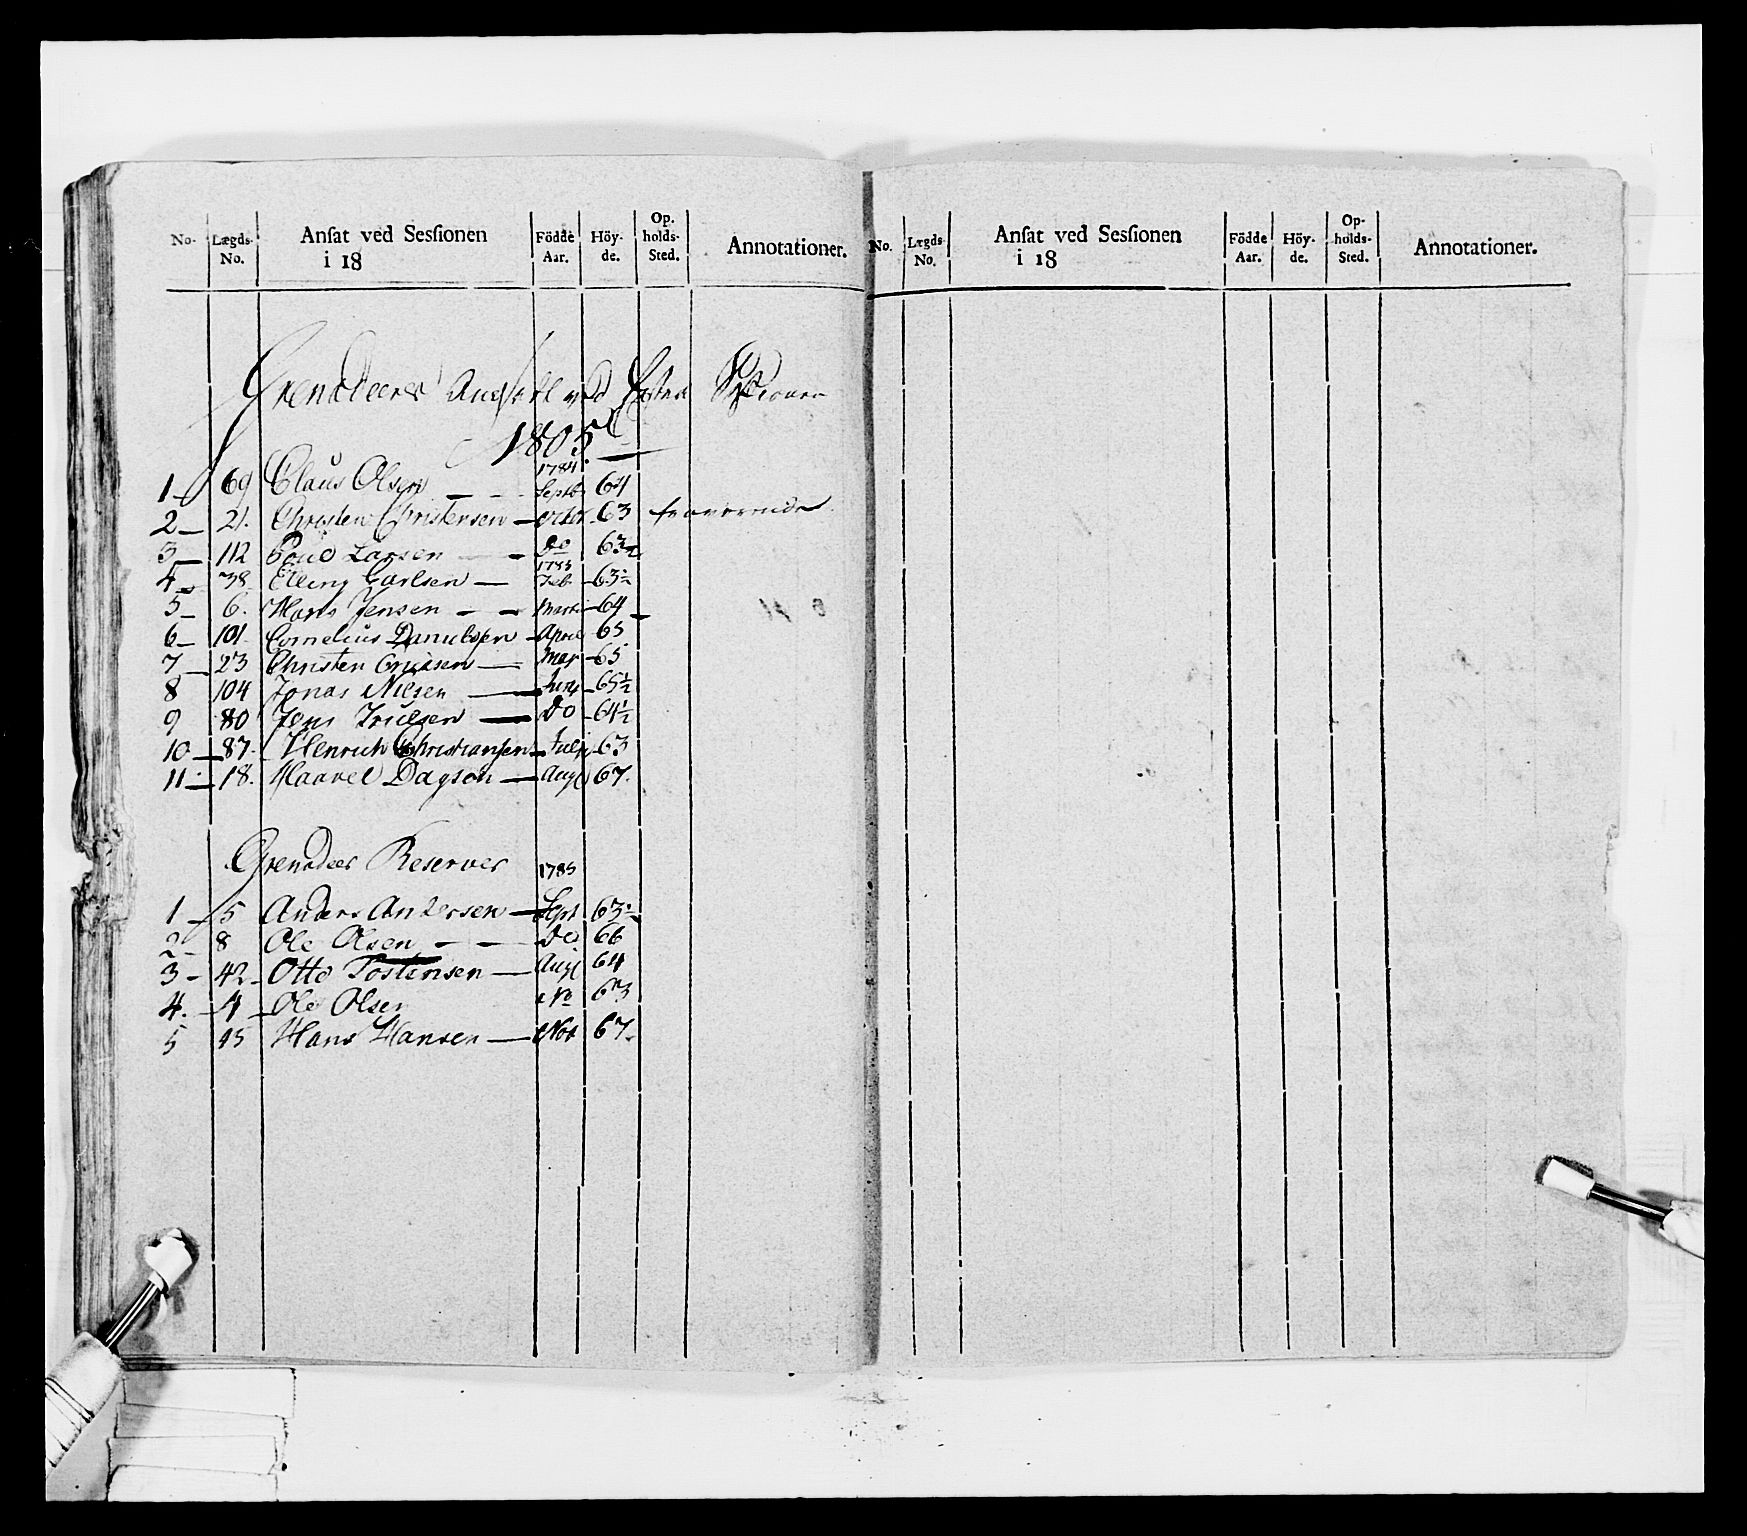 No. Lægds No. Ansat ved Sessionen i 18 Födde Aar. Höyde. Opholds-Sted. Annotationer.
Grenadeerer Ansatt ved
1805
1784
1 69 Claus Olsen Septb 64
2 21. Christen Christensen Octbr 63 fraværende
3 112 Poul Larsen Do 63½
1785
4 38 Elling Carlsen Feb 63½
5 6. Hans Jensen Marti 64
6 101 Cornelius Danielsen April 65
7 23 Christen Erichsen May 65
8 104 Jonas Nilsen Juny 65½
9 80 Jens Truelsen Do 64½
10 87 Henrich Christiansen July 63
11 18. Haavel Dagson Aug 67.
Grenadeer Reserver 1785
1 5 Anders Andersen Sept 63½
2 8 Ole Olsen Do 66
3 42 Otto Tostensen Aug 64
4. 4 Ole Olsen No 63
5 45 Hans Hansen Nov 67
No. Lægds No. Ansat ved Sessionen i 18 Födde Aar. Höyde. Opholds-Sted. Annotationer.